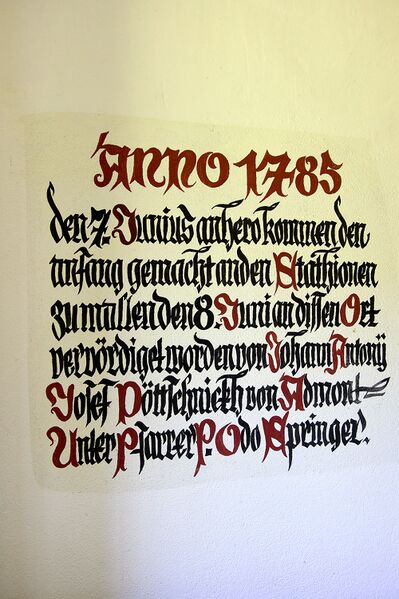 ANNO 1785
den 7. Junius anhero kommen den
anfang gemacht an den Stathionen
zu mallen den 8. Juni an disen Ort
vervördiget worden von Johann Antonij
Josef Pöttschnickh von Admont
Unter Pfarrer P. Odo Springer.